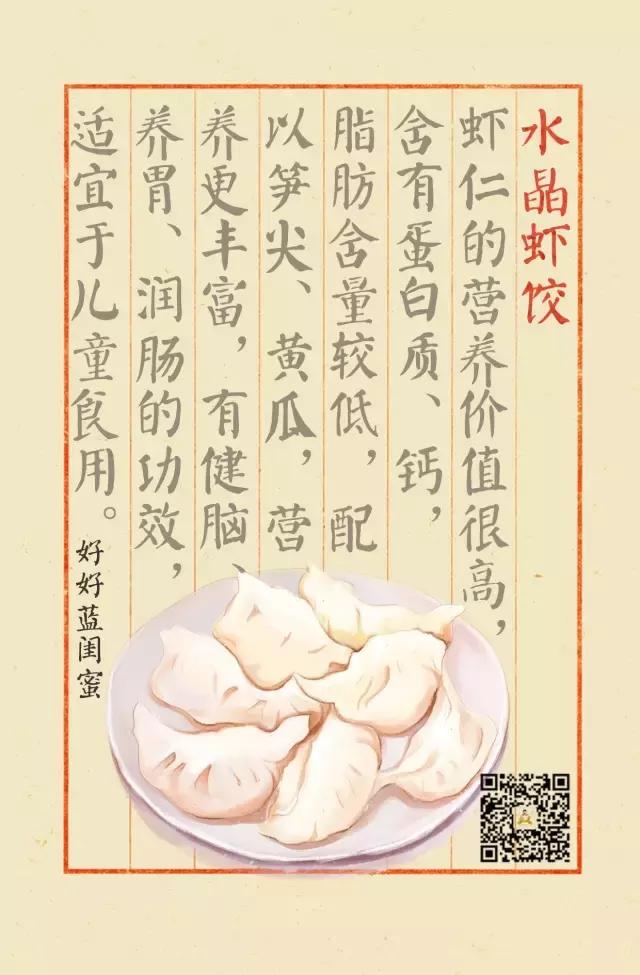 水晶虾饺
虾仁的营养价值很高，
含有蛋白质、钙，
脂肪含量较低，配
以笋尖、黄瓜，营
养更丰富，有健脑、
养胃、润肠的功效，
适宜于儿童食用。
好好蓝闺蜜